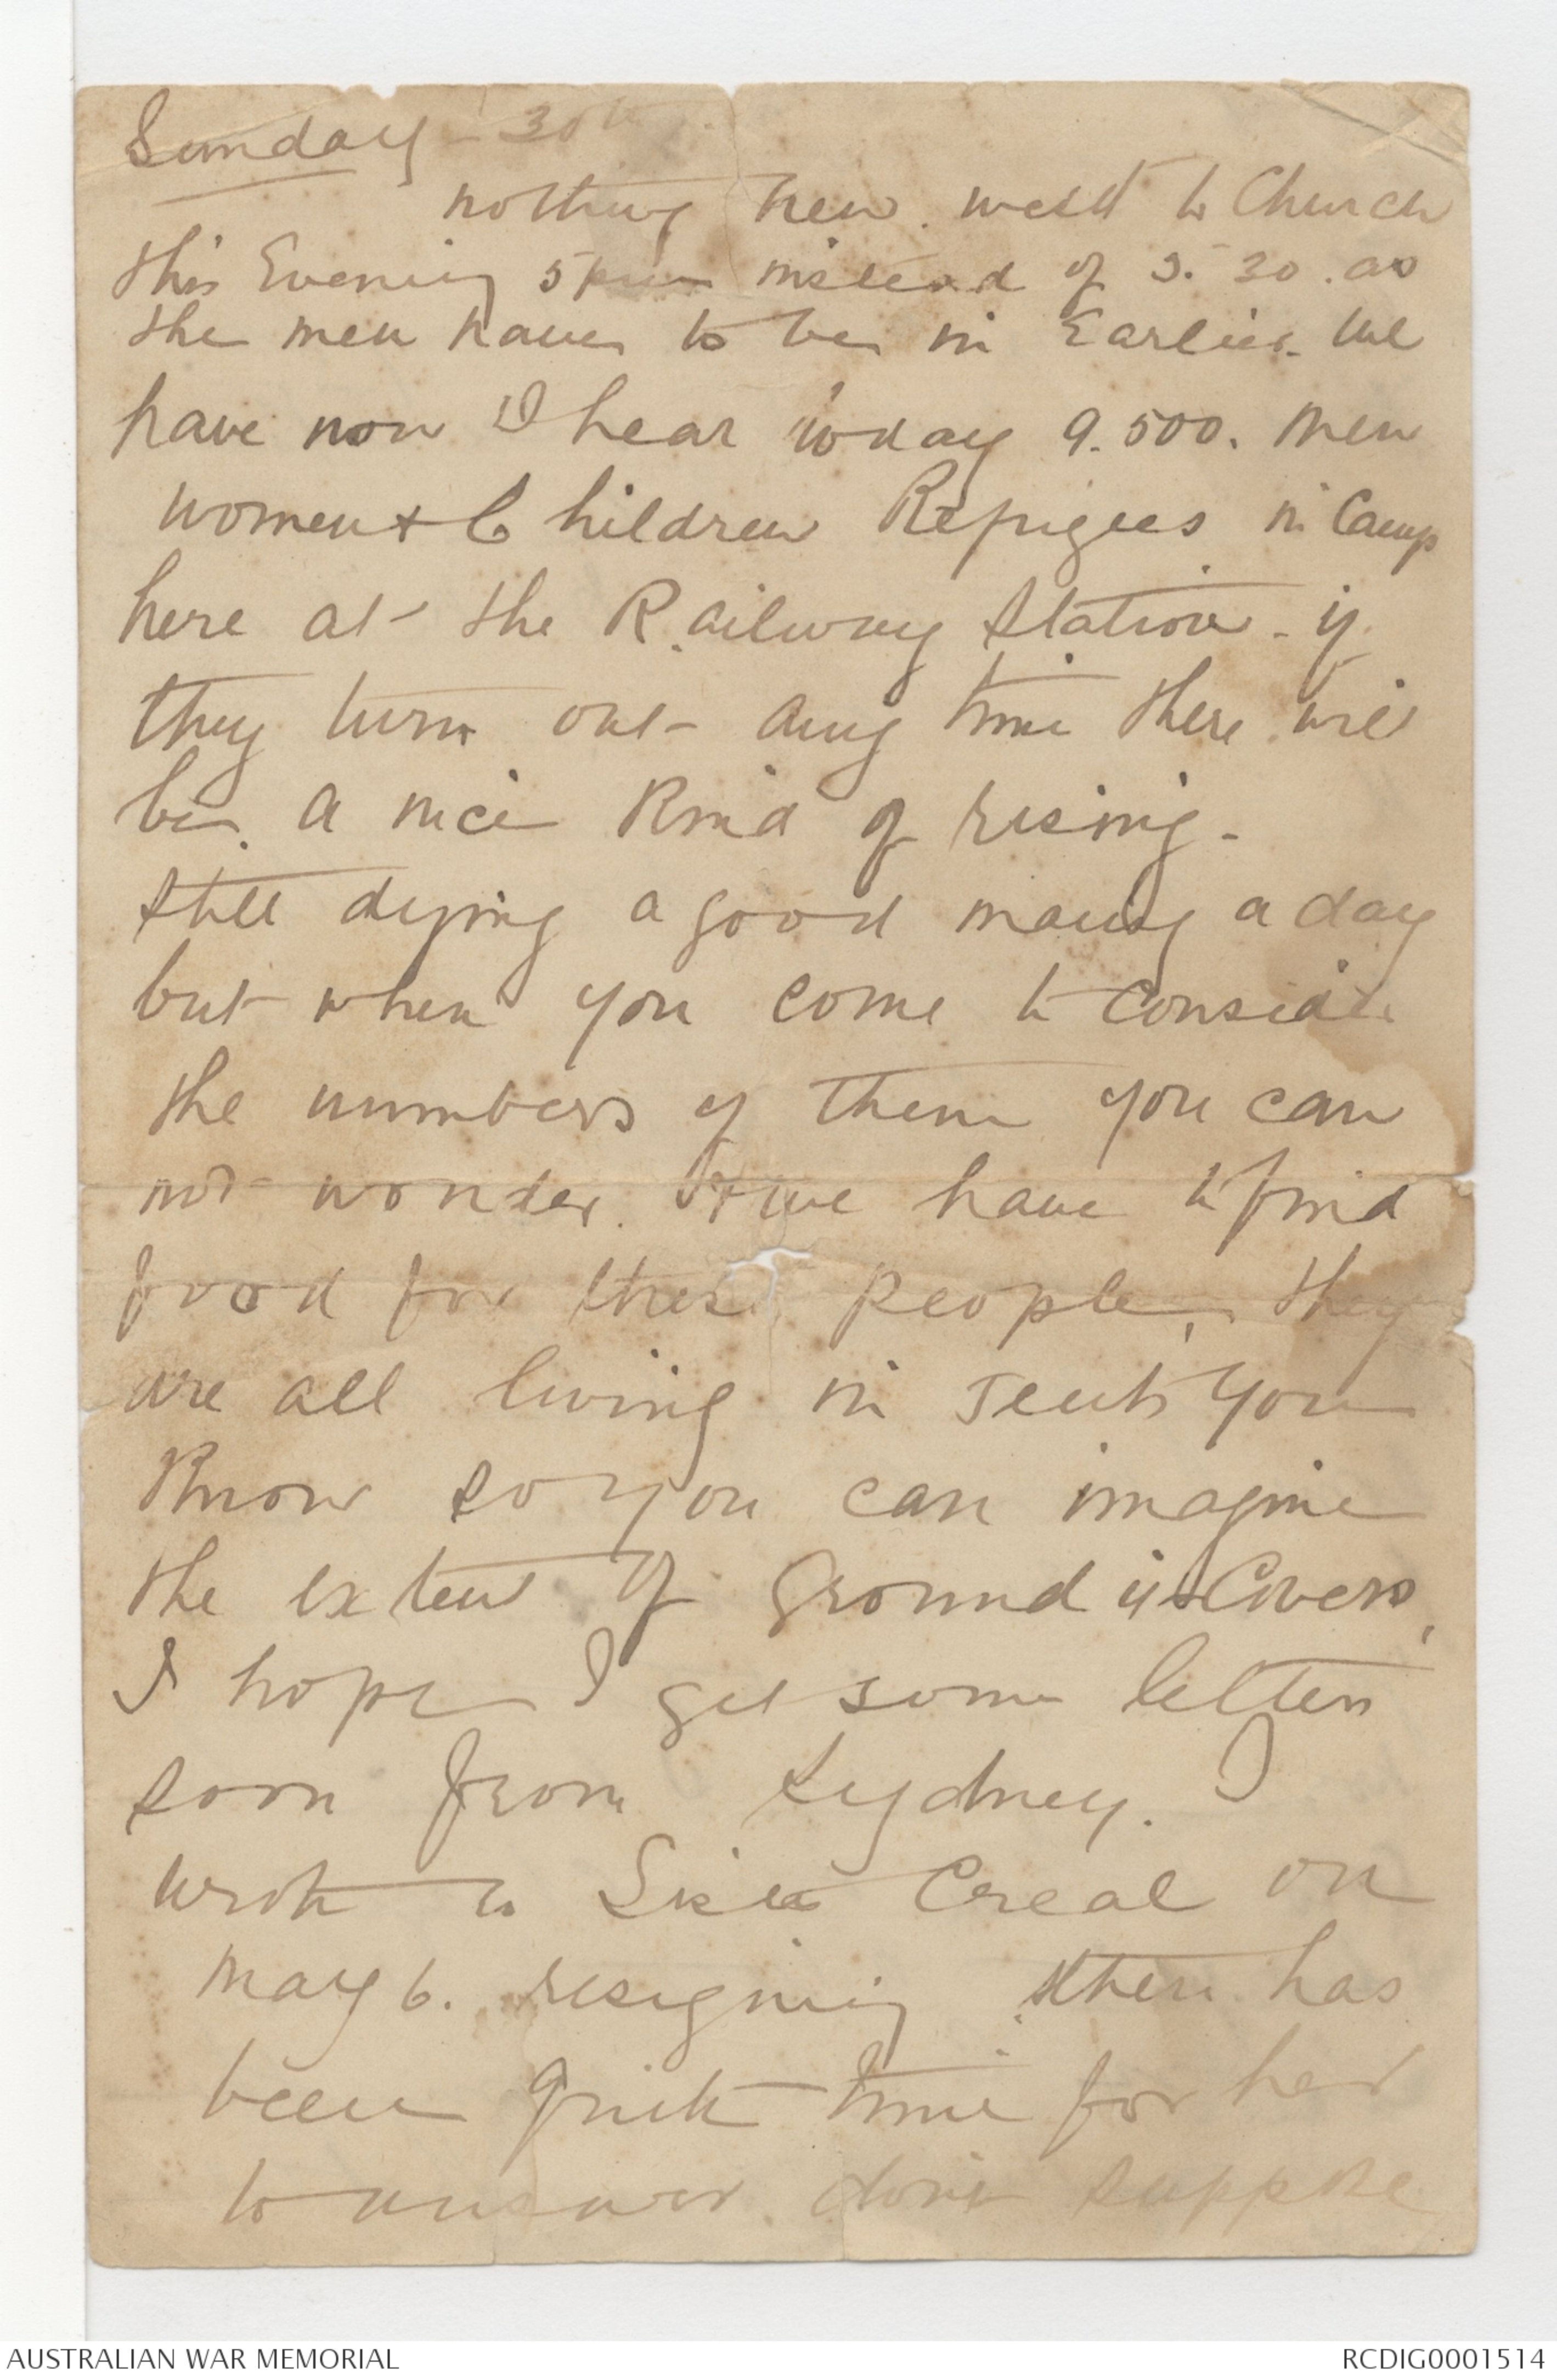 Sunday - 30th
nothing new. went to Church
this Evening 5pm instead of 5.30. as
the men have to be in Earlier. We
have now I hear today 9.500. men
women + Children Refugees in Camp
here at the Railway Station - if
they turn out any time there will
be. a nice Kind of rising -
still dying a good many a day
but when you come to consider
the numbers of them you can
not wonder. + we have to find
food for these people, they
are all living in Tents You
Know so you can imagine
the extent of Ground it Covers,
I hope I get some letters
soon from Sydney. I
wrote to Sister Creal on
May 6. resigning there has
been quite time for her
to answer. don't suppose
AUSTRALIAN WAR MEMORIAL
RCDIG0001514